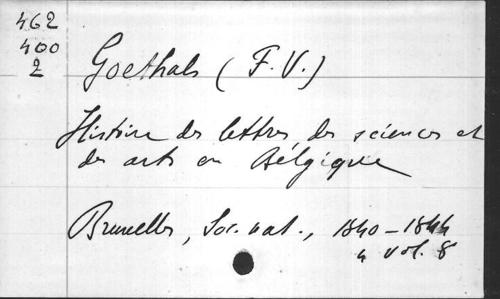 462
400
2
Goethals (F.V.)
Histoire des lettres, des sciences et
des arts en Belgique
Bruxelles, Soc. nat., 1840-1844
4 vol. 8